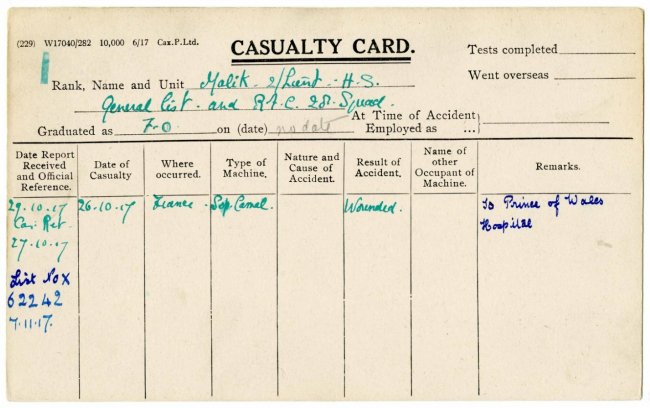 (229) W17040/282 10,000 6/17 Cax.P.Ltd.
CASUALTY CARD.
Tests completed
Went overseas
Rank, Name and Unit Malik - 2/Lieut - H.S.
General List - and R.F.C. 28. Squad.
Graduated as F.O. on (date) no date
At Time of Accident
Employed as ...
Date Report Received and Official Reference.
Date of Casualty
Where occurred.
Type of Machine.
Nature and Cause of Accident.
Result of Accident.
Name of other Occupant of Machine.
Remarks.
29.10.17 26.10.17 France Sop. Camel. Wounded. To Prince of Wales
Cas. Ret. Hospital
27.10.17
List No X
62242
7.11.17.